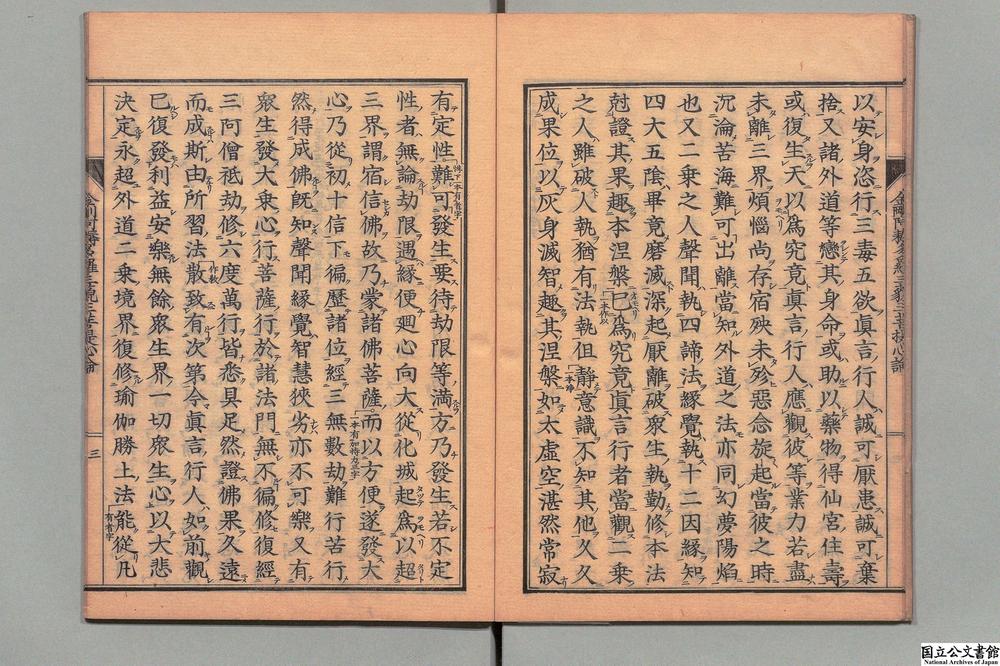 以安身恣行三毒五欲眞言行人誠可厭患誠可棄
捨又諸外道等戀其身命或助以藥物得仙宮住壽
或復生天以爲究竟眞言行人應觀彼等業力若盡
未離三界煩惱尚存宿殃未殄惡念旋起當彼之時
沉淪苦海難可出離當知外道之法亦同幻夢陽焰
也又二乘之人聲聞執四諦法緣覺執十二因緣知
四大五陰畢竟磨滅深起厭離破衆生執勤修本法
尅證其果趣本涅槃已爲究竟眞言行者當觀二乘
之人雖破人執猶有法執但靜意識不知其他久久
成果位以灰身滅智趣其涅槃如太虛空湛然常寂
有定性難可發生要待劫限等滿方乃發生若不定
性者無論劫限遇緣便廻心向大從化城起爲以超
三界謂宿信佛故乃蒙諸佛菩薩而以方便遂發大
心乃從初十信下徧歷諸位經三無數劫難行苦行
然得成佛既知聲聞緣覺智慧狹劣亦不可樂又有
衆生發大乘心行菩薩行於諸法門無不徧修復經
三阿僧祇劫修六度萬行皆悉具足然證佛果久遠
而成斯由所習法散致有次第今眞言行人如前觀
已復發利益安樂無餘衆生界一切衆生心以大悲
決定永超外道二乘境界復修瑜伽勝上法能從凡
三
国立公文書館
National Archives of Japan